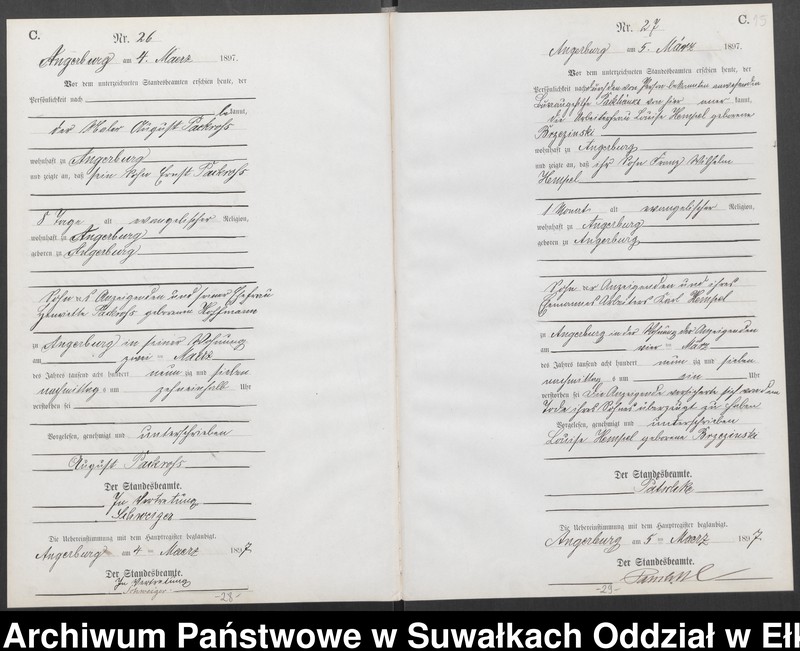 C.
Nr. 26
Angerburg am 4. Maerz 1897.
Vor dem unterzeichneten Standesbeamten erschien heute, der
Persönlichkeit nach
bekannt,
der Maler August Packroß
wohnhaft zu Angerburg
und zeigte an, daß sein Sohn Ernst Packroß
8 Tage alt evangelischer Religion,
wohnhaft zu Angerburg
geboren zu Angerburg
Sohn des Anzeigenden und seiner Ehefrau
Henriette Packroß geborenen Hoffmann
zu Angerburg in seiner Wohnung
am zwei ten Maerz
des Jahres tausend acht hundert neun zig und sieben
nachmittag s um zehneinhalb Uhr
verstorben sei
Vorgelesen, genehmigt und unterschrieben
August Packroß
Der Standesbeamte.
In Vertretung
Schweiger
Die Uebereinstimmung mit dem Hauptregister beglaubigt.
Angerburg am 4 ten Maerz 1897
Der Standesbeamte.
In Vertretung
Schweiger
-28-
C. 15
Nr. 27
Angerburg am 5. März 1897.
Vor dem unterzeichneten Standesbeamten erschien heute, der
Persönlichkeit nach durch den von Person bekannten anwesenden
von hier aner kannt,
die Arbeiterfrau Louise Hempel geborene
Brzezinski
wohnhaft zu Angerburg
und zeigte an, daß ihr Sohn Franz Wilhelm
Hempel
1 Monat alt evangelischer Religion,
wohnhaft zu Angerburg
geboren zu Angerburg
Sohn der Anzeigenden und ihres
Ehemannes Arbeiters Karl Hempel
zu Angerburg in der Wohnung der Anzeigenden
am vier ten März
des Jahres tausend acht hundert neun zig und sieben
nachmittag s um ein Uhr
verstorben sei Die Anzeigende versicherte sich von dem
Tode ihres Sohnes überzeugt zu haben
Vorgelesen, genehmigt und unterschrieben
Louise Hempel geborene Brzezinski
Der Standesbeamte.
Die Uebereinstimmung mit dem Hauptregister beglaubigt.
Angerburg am 5 ten Maerz 1897.
Der Standesbeamte.
-29-
Archiwum Państwowe w Suwałkach Oddział w Ełk